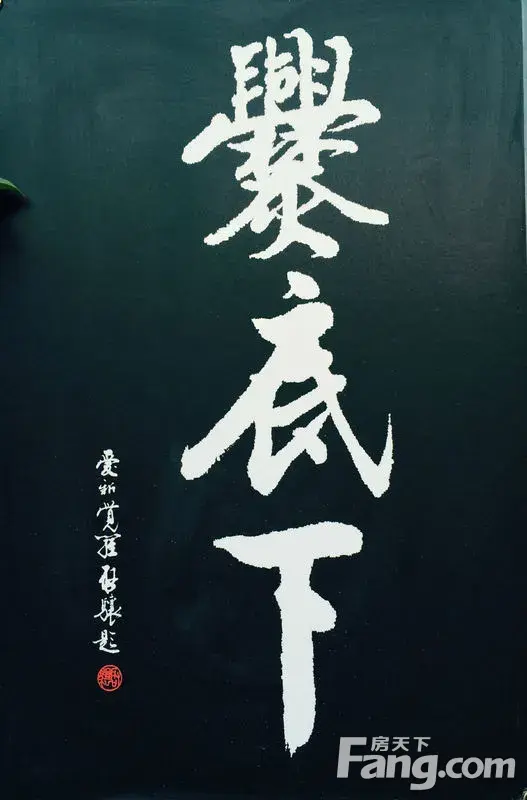 爨底下
爱新觉罗启骧题
房天下
Fang.com